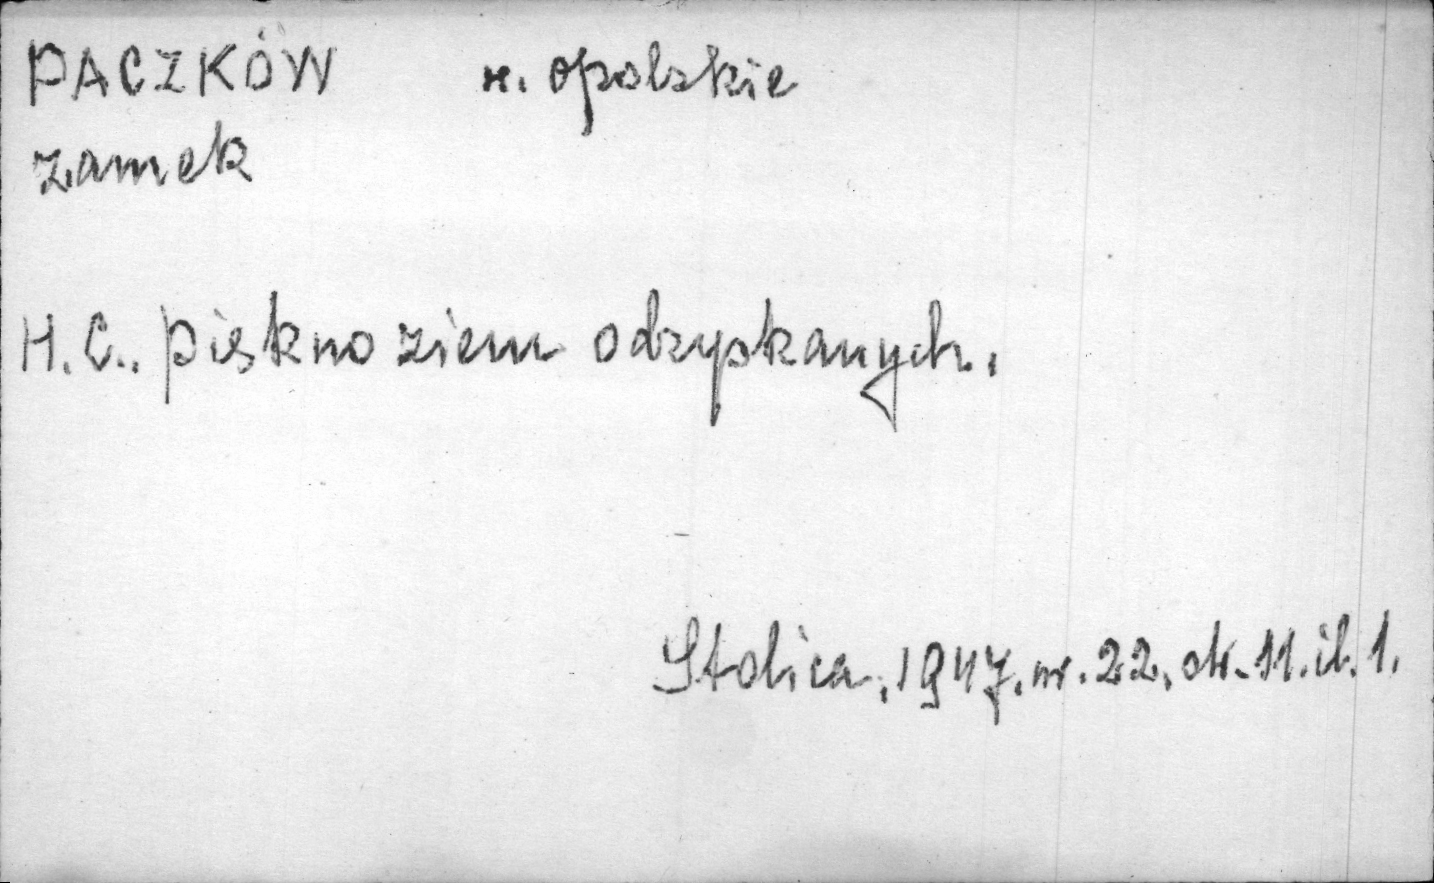 PACZKÓW w. opolskie
zamek
H.C.. Piękno ziem odzyskanych.
Stolica, 1947. nr. 22, str. 11. il. 1.